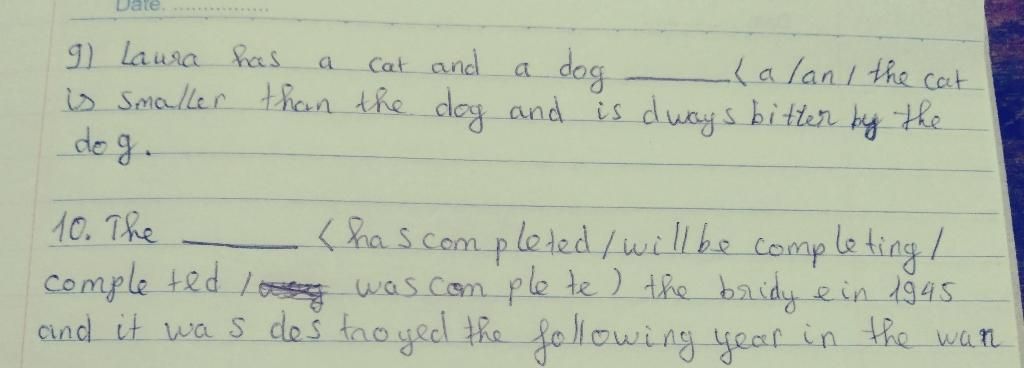 Date. ................
9) Laura has a cat and a dog ______ ( a / an / the cat
is smaller than the dog and is always bitten by the
dog.
10. The ______ ( has completed / will be completing /
completed / was complete ) the bridy e in 1945
and it was destroyed the following year in the war